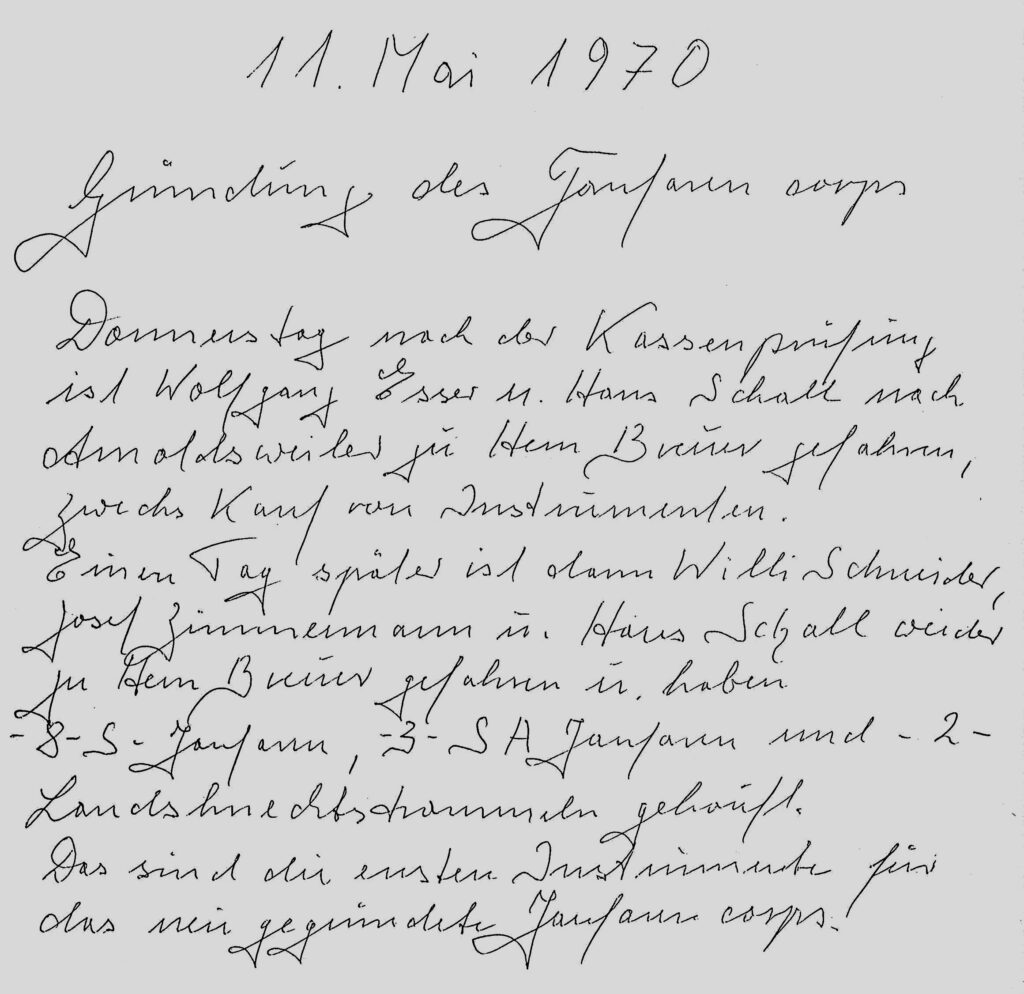 11. Mai 1970
Gründung des Fanfaren corps
Donnerstag nach der Kassenprüfung
ist Wolfgang Esser u. Hans Schall nach
Arnoldsweiler zu Herrn Breuer gefahren,
zwecks Kauf von Instrumenten.
Einen Tag später ist dann Willi Schneider,
Josef Zimmermann u. Hans Schall wieder
zu Herrn Breuer gefahren u. haben
-8-S-Fanfaren, -3-SA Fanfaren und -2-
Landsknechtstrommeln gekauft.
Das sind die ersten Instrumente für
das neu gegründete Fanfaren corps.